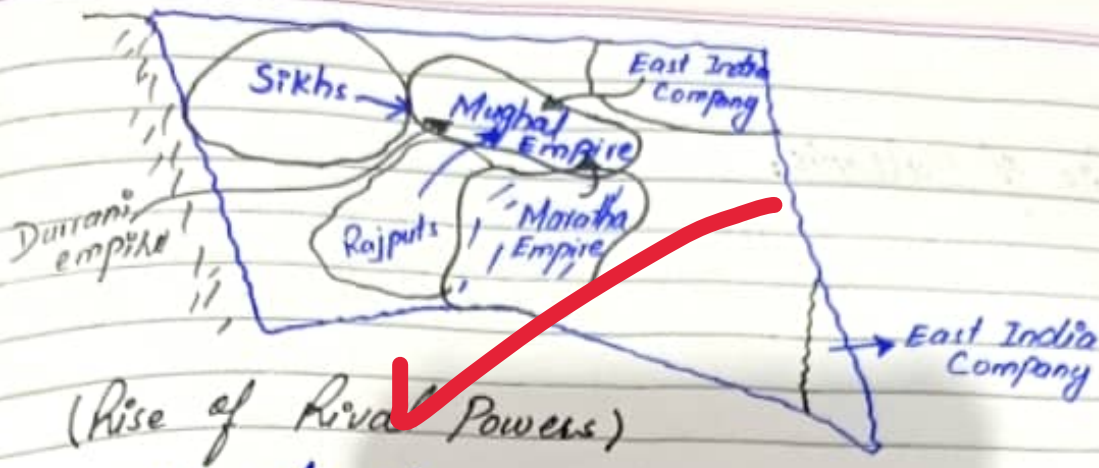 Sikhs
East India
Company
Mughal
Empire
Durrani
empire
Rajputs
Maratha
Empire
East India
Company
(Rise of Rival Powers)